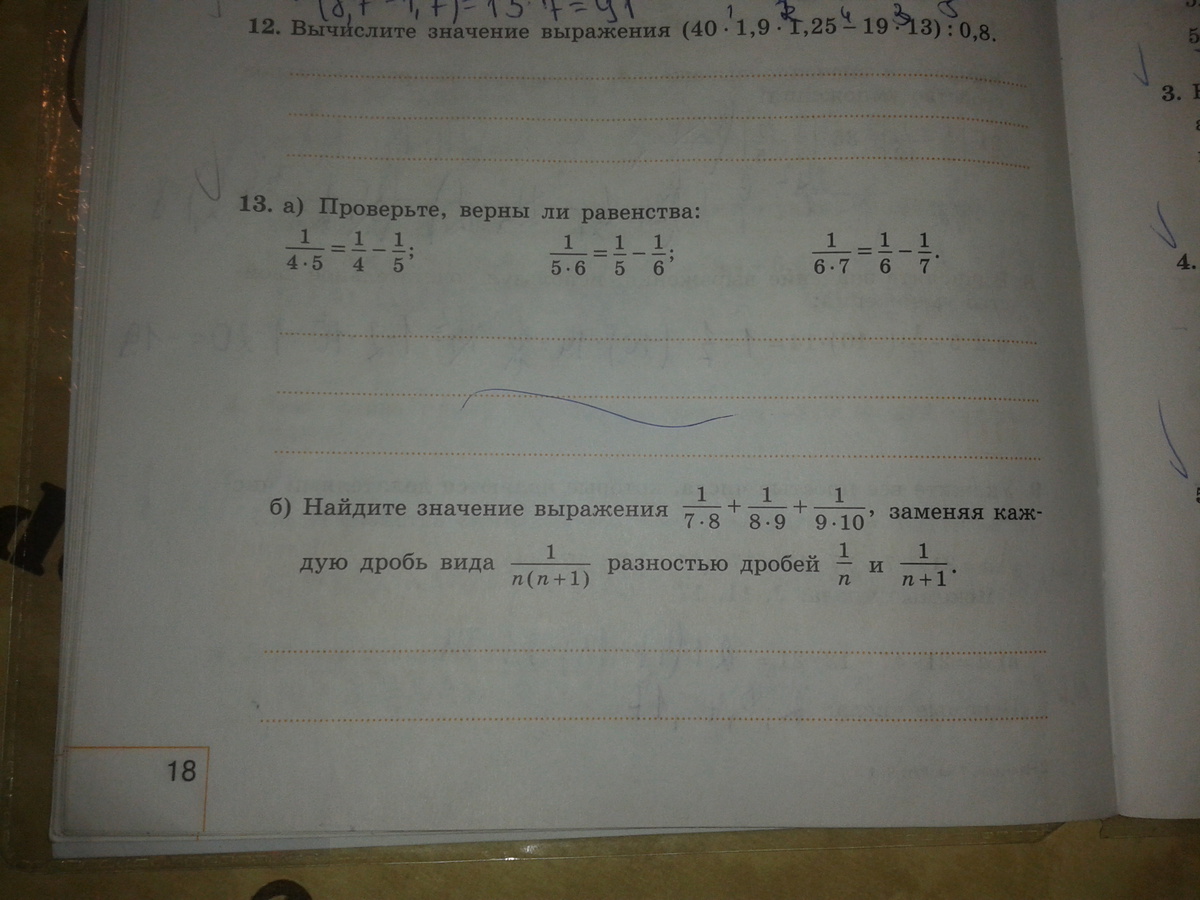 (8,7-1,7)=13·7=91
12. Вычислите значение выражения (40 · 1,9 · 1,25 – 19 · 13) : 0,8.
1 2 4 3 5
13. а) Проверьте, верны ли равенства:
1/(4·5) = 1/4 − 1/5; 1/(5·6) = 1/5 − 1/6; 1/(6·7) = 1/6 − 1/7.
б) Найдите значение выражения 1/(7·8) + 1/(8·9) + 1/(9·10), заменяя каж-
дую дробь вида 1/(n(n+1)) разностью дробей 1/n и 1/(n+1).
18
3.
4.